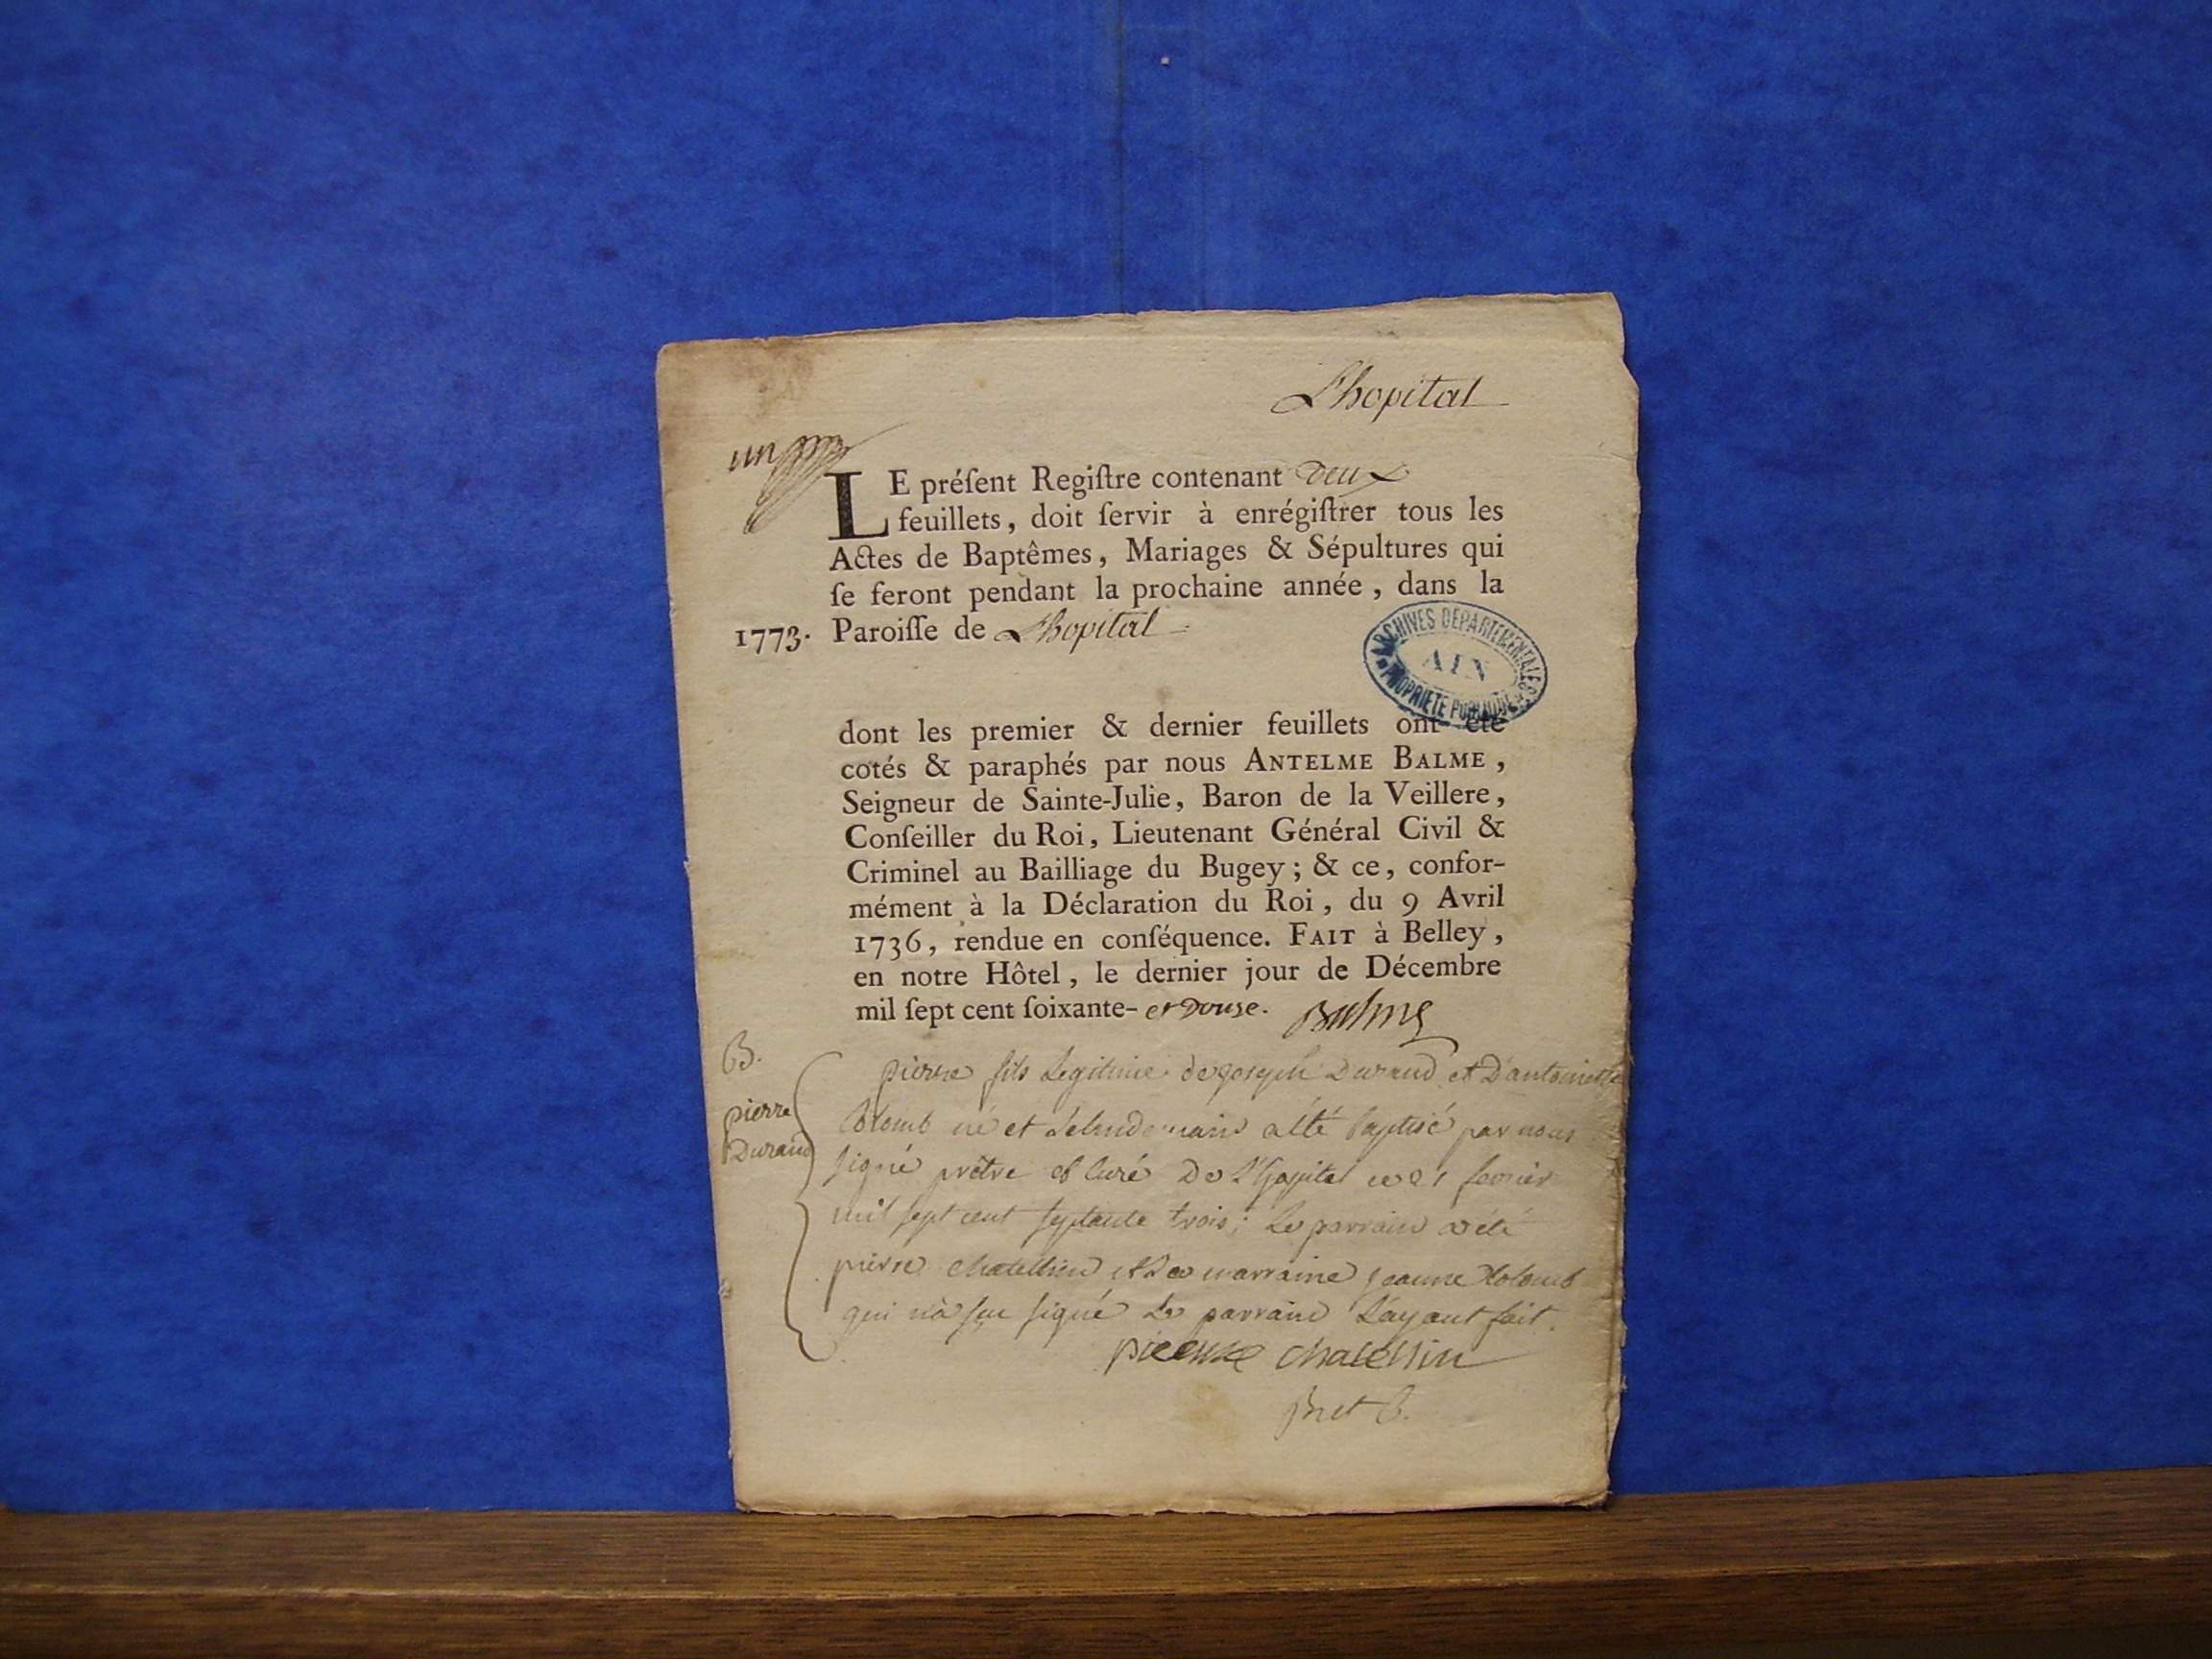 L'hopital
un
LE préſent Regiſtre contenant Deux
feuillets, doit ſervir à enrégiſtrer tous les
Actes de Baptêmes, Mariages & Sépultures qui
ſe feront pendant la prochaine année, dans la
1773. Paroiſſe de L'hopital
ARCHIVES DEPARTEMENTALES
AIN
PROPRIETE PUBLIQUE
dont les premier & dernier feuillets ont été
cotés & paraphés par nous ANTELME BALME,
Seigneur de Sainte-Julie, Baron de la Veillere,
Conſeiller du Roi, Lieutenant Général Civil &
Criminel au Bailliage du Bugey; & ce, confor-
mément à la Déclaration du Roi, du 9 Avril
1736, rendue en conſéquence. FAIT à Belley,
en notre Hôtel, le dernier jour de Décembre
mil ſept cent ſoixante- et Douze. Balme
B.
pierre
Durand
pierre fils Legitime de joseph Durand et D'antoinette
Colomb né et Lelendemain a été baptisé par nous
signé prêtre et curé De L'hopital ce 21 fevrier
mil sept cent septante trois; Le parrain a été
pierre chatellin et La marraine jeanne Colomb
qui n'a seu signé Le parrain L'ayant fait.
pierre chatellin
Bret C.